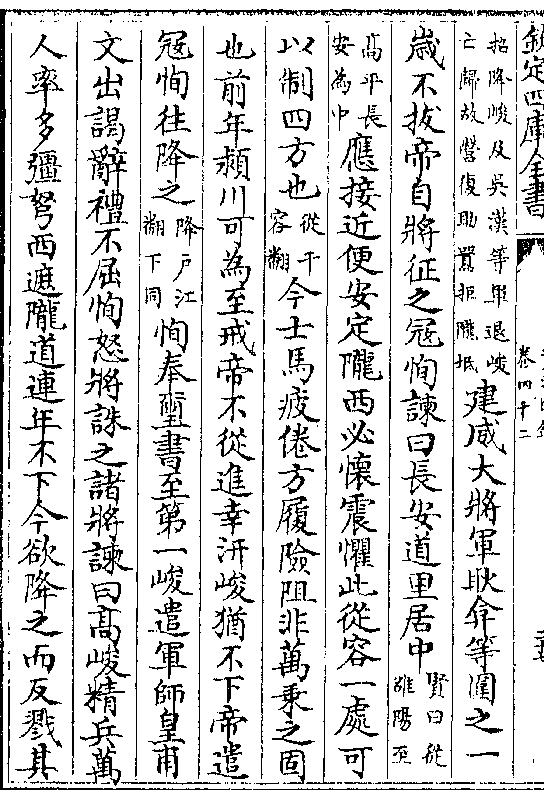 欽定四庫全書
卷四十二
招降峻及吳漢等軍退峻
亡歸故營復助囂拒隴坻
建威大將軍耿弇等圍之一
歲不拔帝自將征之冦恂諫曰長安道里居中
賢曰從
雒陽至
高平長
安為中
應接近便安定隴西必懷震懼此從容一處可
以制四方也
從千
容翻
今士馬疲倦方履險阻非萬乗之固
也前年潁川可為至戒帝不從進幸汧峻猶不下帝遣
冦恂往降之
降戶江
翻下同
恂奉璽書至第一峻遣軍師皇甫
文出謁辭禮不屈恂怒將誅之諸將諫曰高峻精兵萬
人率多彊弩西遮隴道連年不下今欲降之而反戮其